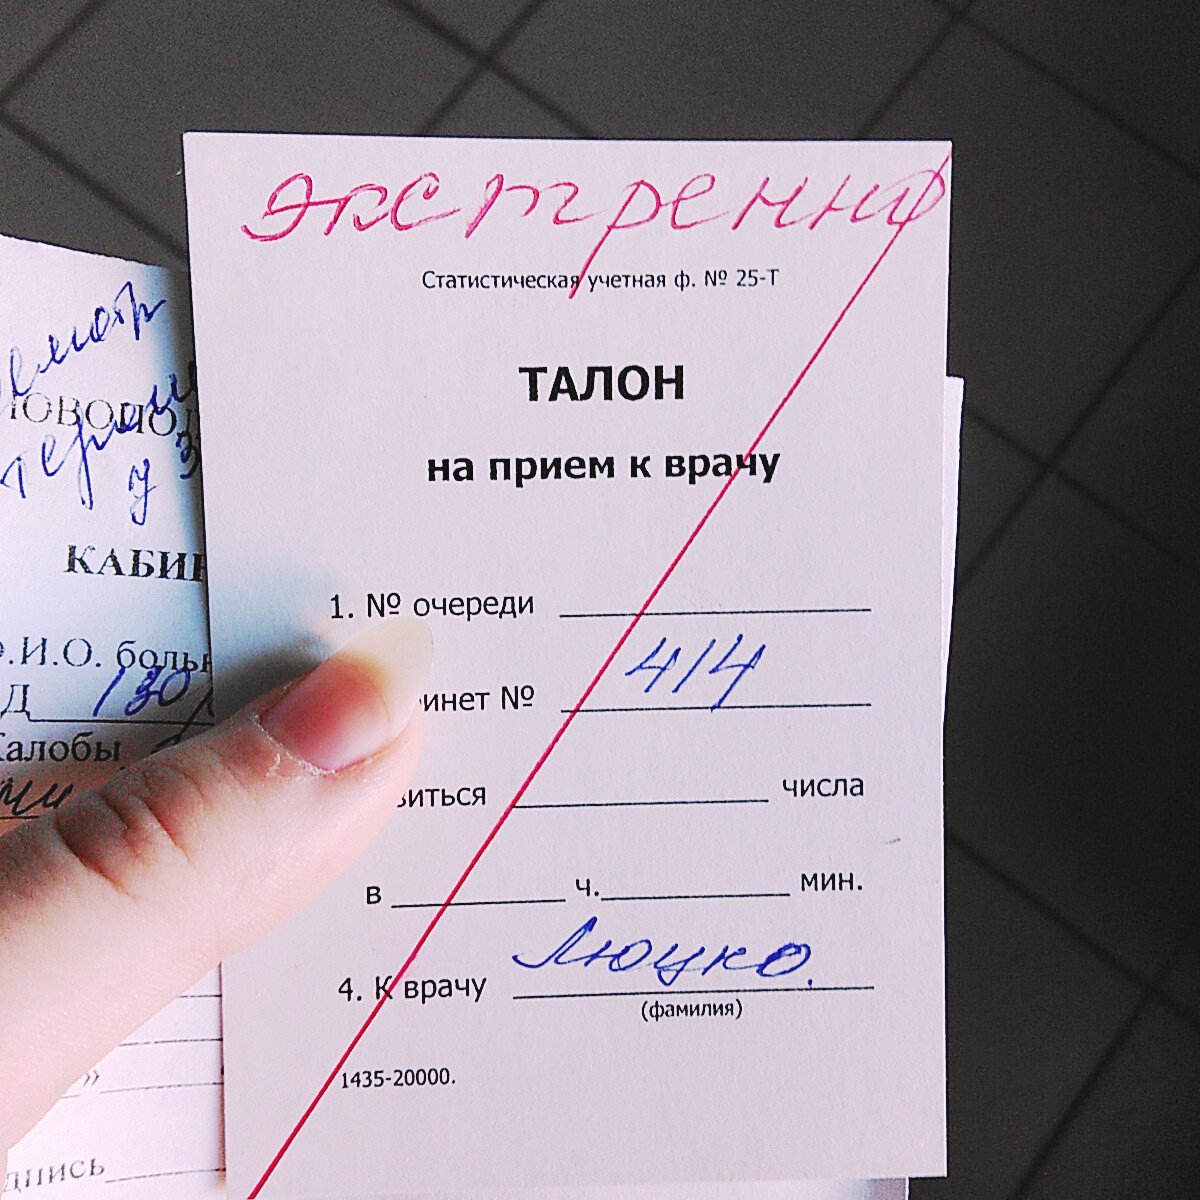 экстренно
Статистическая учетная ф. № 25-Т
ТАЛОН
на прием к врачу
1. № очереди
инет № 414
виться числа
в ч. мин.
4. К врачу Люцко.
(фамилия)
1435-20000.
КАБИН
Ф.И.О. больн
АД 130/
Жалобы
дпись